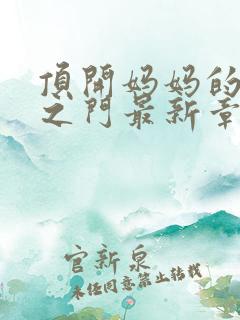 頂開妈妈的
之门最新章
官新泉
未经同意禁止转载